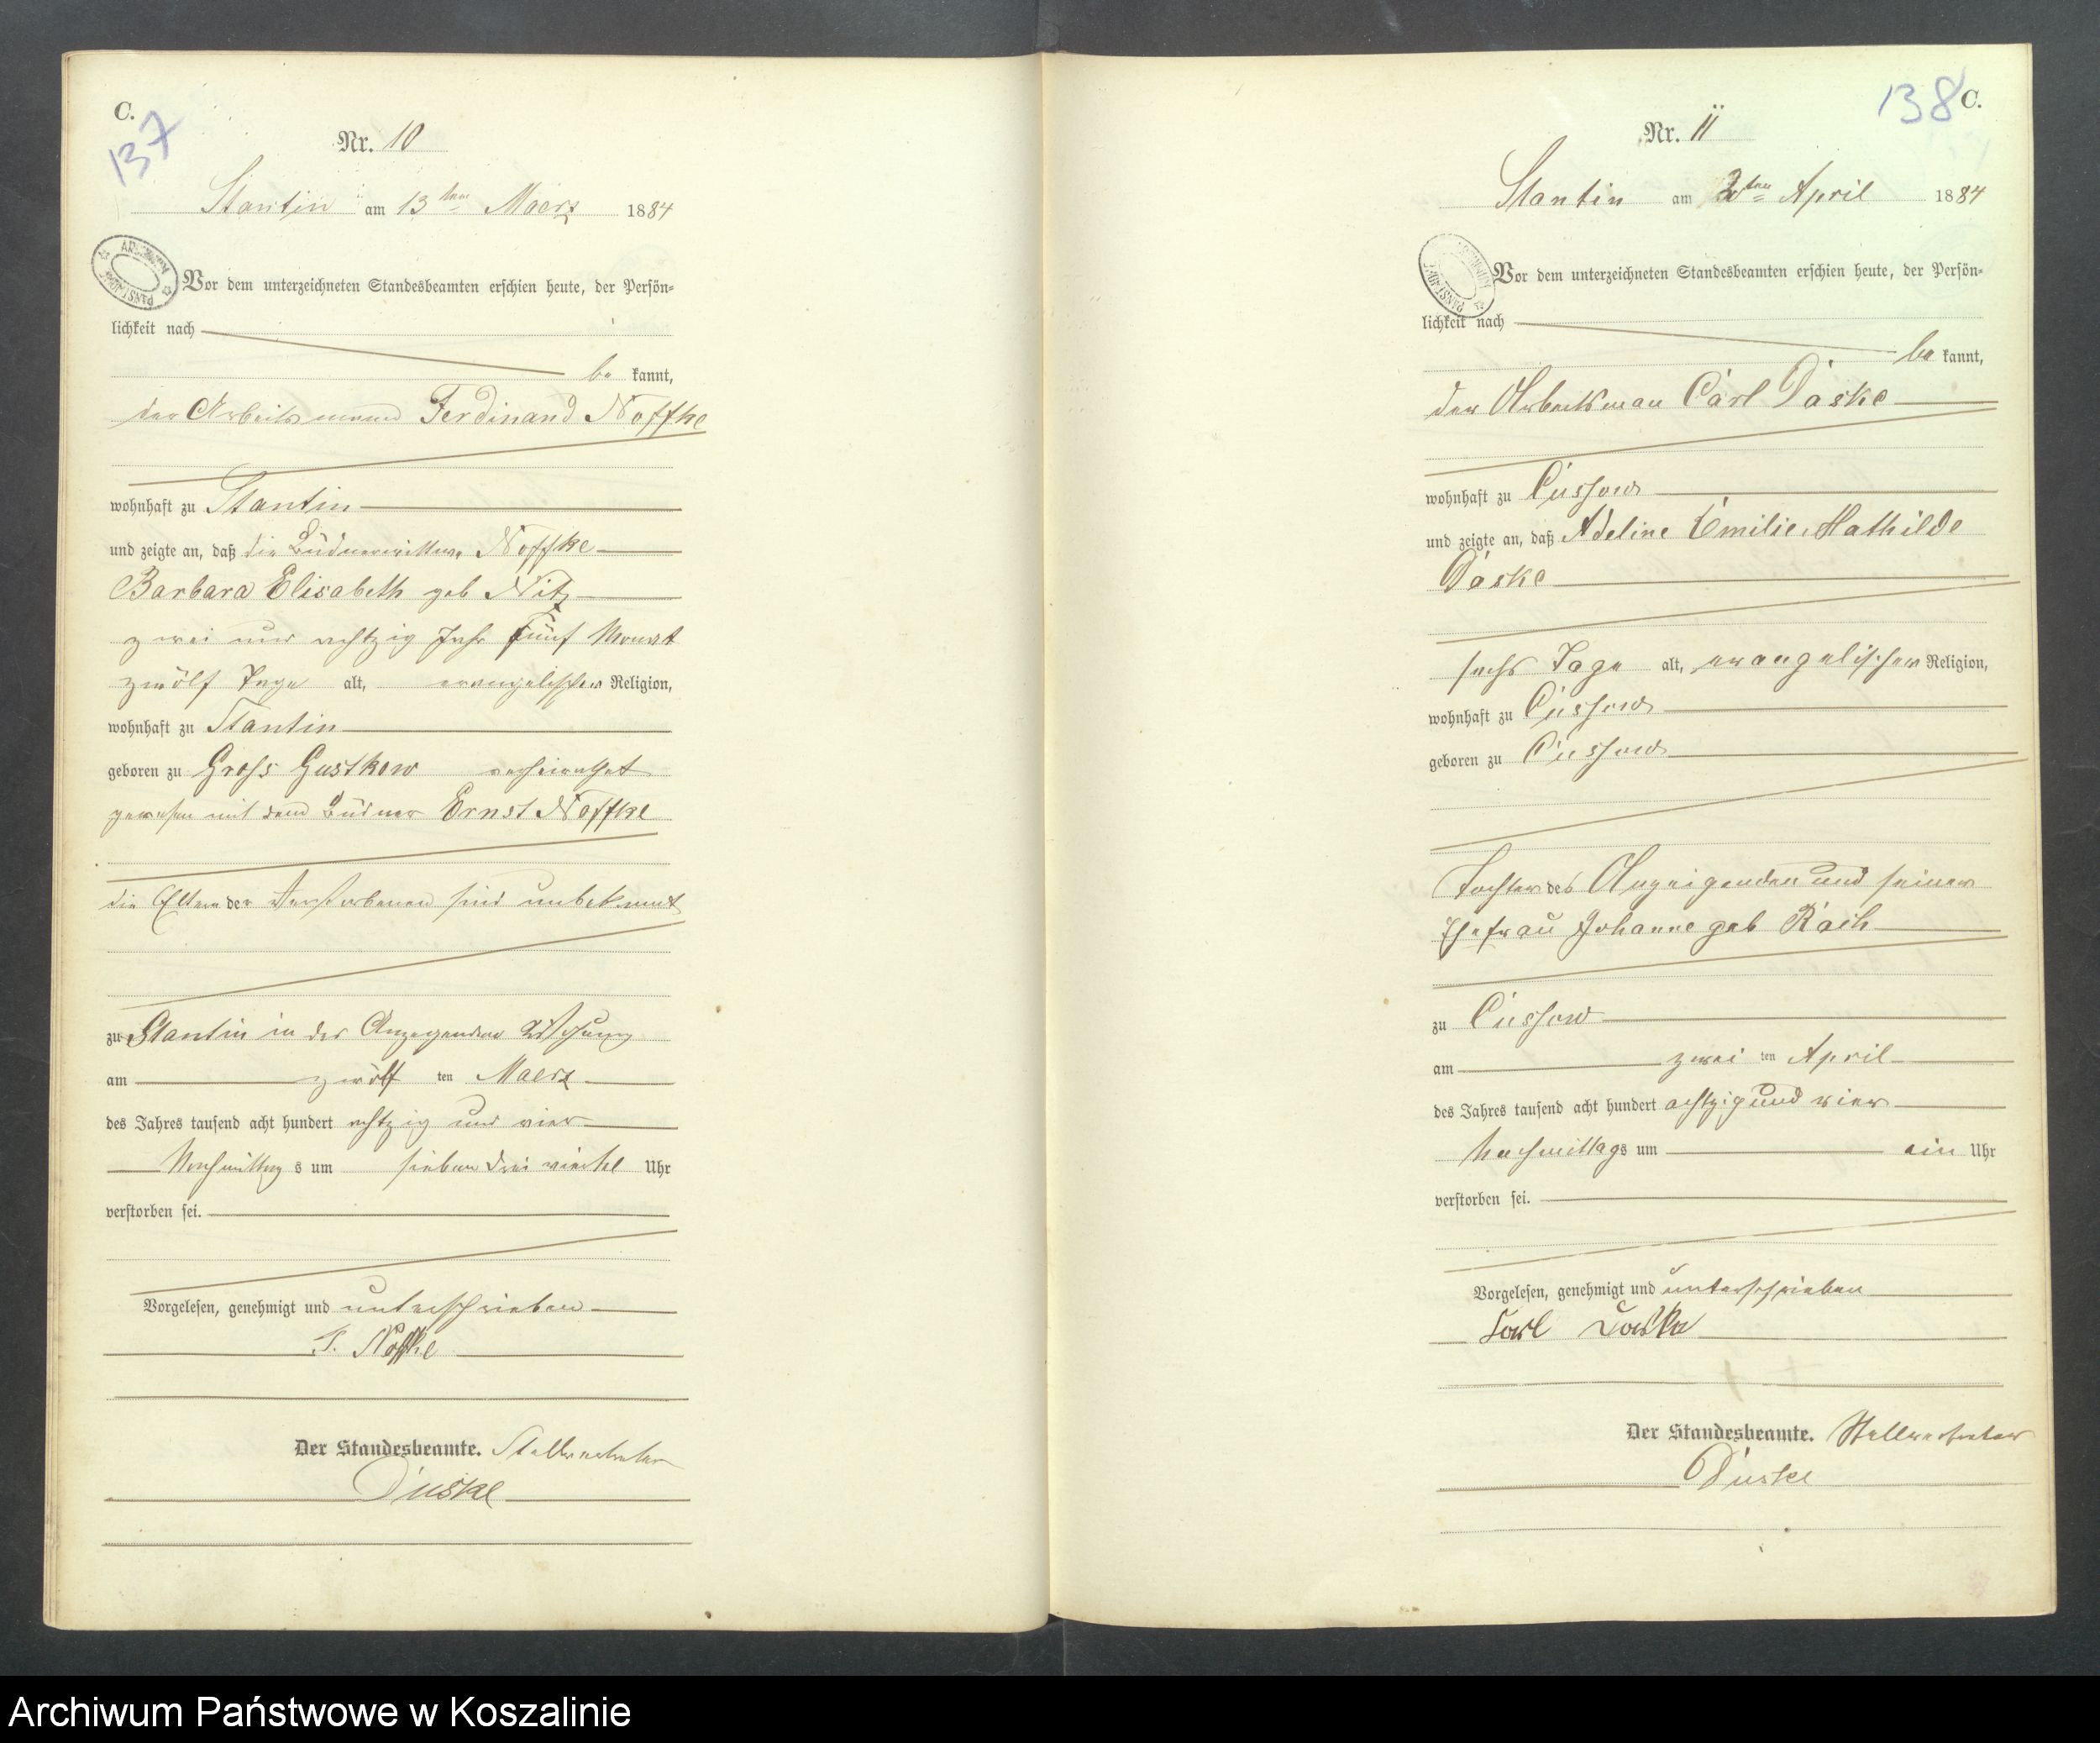 C.
137
Nr. 10
Stantin am 13ten Maerz 1884
Vor dem unterzeichneten Standesbeamten erschien heute, der Persön-
lichkeit nach
be kannt,
der Arbeitsmann Ferdinand Noffke
wohnhaft zu Stantin
und zeigte an, daß die Büdnerwittwe Noffke
Barbara Elisabeth geb Nitz
zwei und achtzig Jahr fünf Monat
zwölf Tage alt, evangelischer Religion,
wohnhaft zu Stantin
geboren zu Gross Gustkow verheirathet
gewesen mit dem Büdner Ernst Noffke
die Eltern der Verstorbenen sind unbekannt
zu Stantin in der Anzeigenden Wohnung
am zwölf ten Maerz
des Jahres tausend acht hundert achtzig und vier
Nachmittag s um sieben drei viertel Uhr
verstorben sei.
Vorgelesen, genehmigt und unterschrieben
F. Noffke
Der Standesbeamte. Stellvertreter
Duske
138 C.
Nr. 11
Stantin am 2ten April 1884
Vor dem unterzeichneten Standesbeamten erschien heute, der Persön-
lichkeit nach
be kannt,
der Arbeitsman Carl Daske
wohnhaft zu Cussow
und zeigte an, daß Adeline Emilie Mathilde
Daske
sechs Tage alt, evangelischer Religion,
wohnhaft zu Cussow
geboren zu Cussow
Tochter des Anzeigenden und seiner
Ehefrau Johanne geb Rach
zu Cussow
am zwei ten April
des Jahres tausend acht hundert achtzig und vier
Nachmittags um ein Uhr
verstorben sei.
Vorgelesen, genehmigt und unterschrieben
Carl Daske
Der Standesbeamte. Stellvertreter
Duske
Archiwum Państwowe w Koszalinie